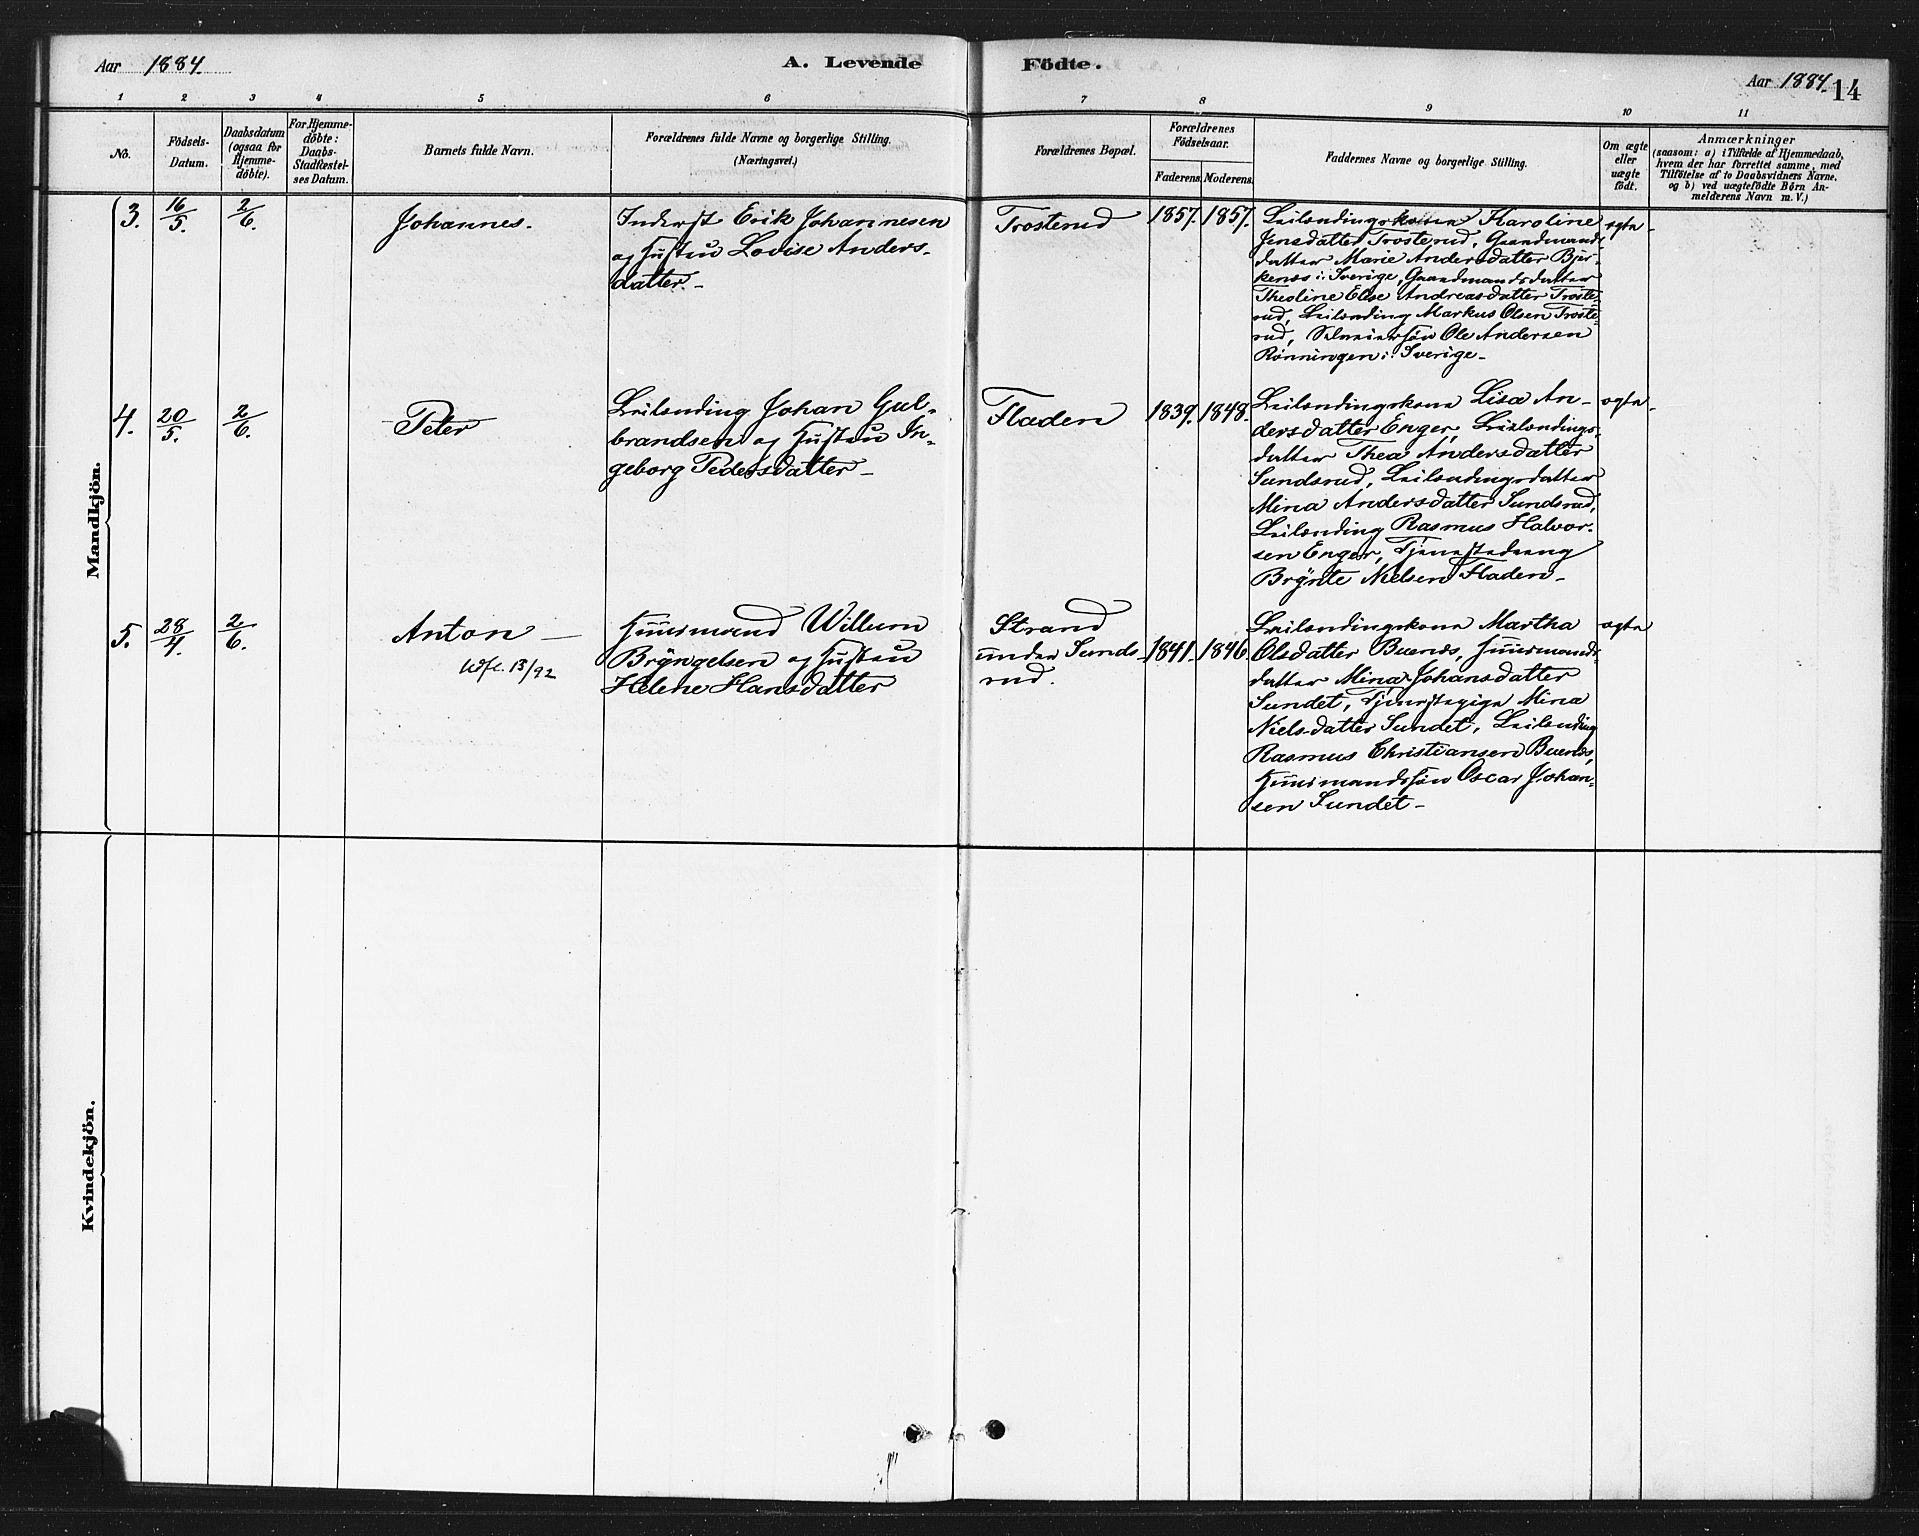 Aar 1884.
A. Levende Födte.
Aar 1884.
14
1 2 3 4 5 6 7 8 9 10 11
No.
Födsels-
Datum.
Daabsdatum
(ogsaa for
Hjemme-
döbte).
For Hjemme-
döbte:
Daabs-
Stadfæstel-
ses Datum.
Barnets fulde Navn.
Forældrenes fulde Navne og borgerlige Stilling.
(Næringsvei.)
Forældrenes Bopæl.
Forældrenes
Födselsaar.
Faderens. Moderens.
Faddernes Navne og borgerlige Stilling.
Om ægte
eller
uægte
født.
Anmærkninger
(saasom: a) i Tilfælde af Hjemmedaab,
hvem der har forrettet samme, med
Tilföielse af to Daabsvidners Navne,
og b) ved uægtefödte Börn An-
melderens Navn m. V.)
Mandkjön.
3.
16/5.
2/6.
Johannes.
Inderst Erik Johannesen
og Hustru Lovise Anders-
datter.
Trosterud
1857. 1857.
Leilændingskone Karoline
Jensdatter Trosterud, Gaardmands-
datter Marie Andersdatter Bjer-
kenæs i Sverige, Gaardmandsdatter
Theoline Elise Andreasdatter Troste-
rud, Leilænding Markus Olsen Troste-
rud, Selveiersøn Ole Andersen
Rönningen i Sverige.
ægte
4.
20/5.
2/6.
Peter
Leilænding Johan Gul-
brandsen og Hustru In-
geborg Pedersdatter
Fladen
1839. 1848.
Leilændingskone Lisa An-
dersdatter Enger, Leilændings-
datter Thea Andersdatter
Sundsrud, Leilændingsdatter
Mina Andersdatter Sundsrud,
Leilænding Rasmus Halvor-
sen Enger, Tjenestedreng
Brynte Nielsen Fladen
ægte
5.
28/4.
2/6.
Anton
13/92
Huusmand Willum
Bryngelsen og Hustru
Helene Hansdatter
Strand
under Sunds-
rud.
1841. 1846
Leilændingskone Martha
Olsdatter Buenæs, Huusmands-
datter Mina Johansdatter
Sundet, Tjenestepige Mina
Nielsdatter Sundet, Leilænding
Rasmus Christiansen Buenæs,
Huusmandssøn Oscar Johan-
sen Sundet
ægte
Kvindekjön.